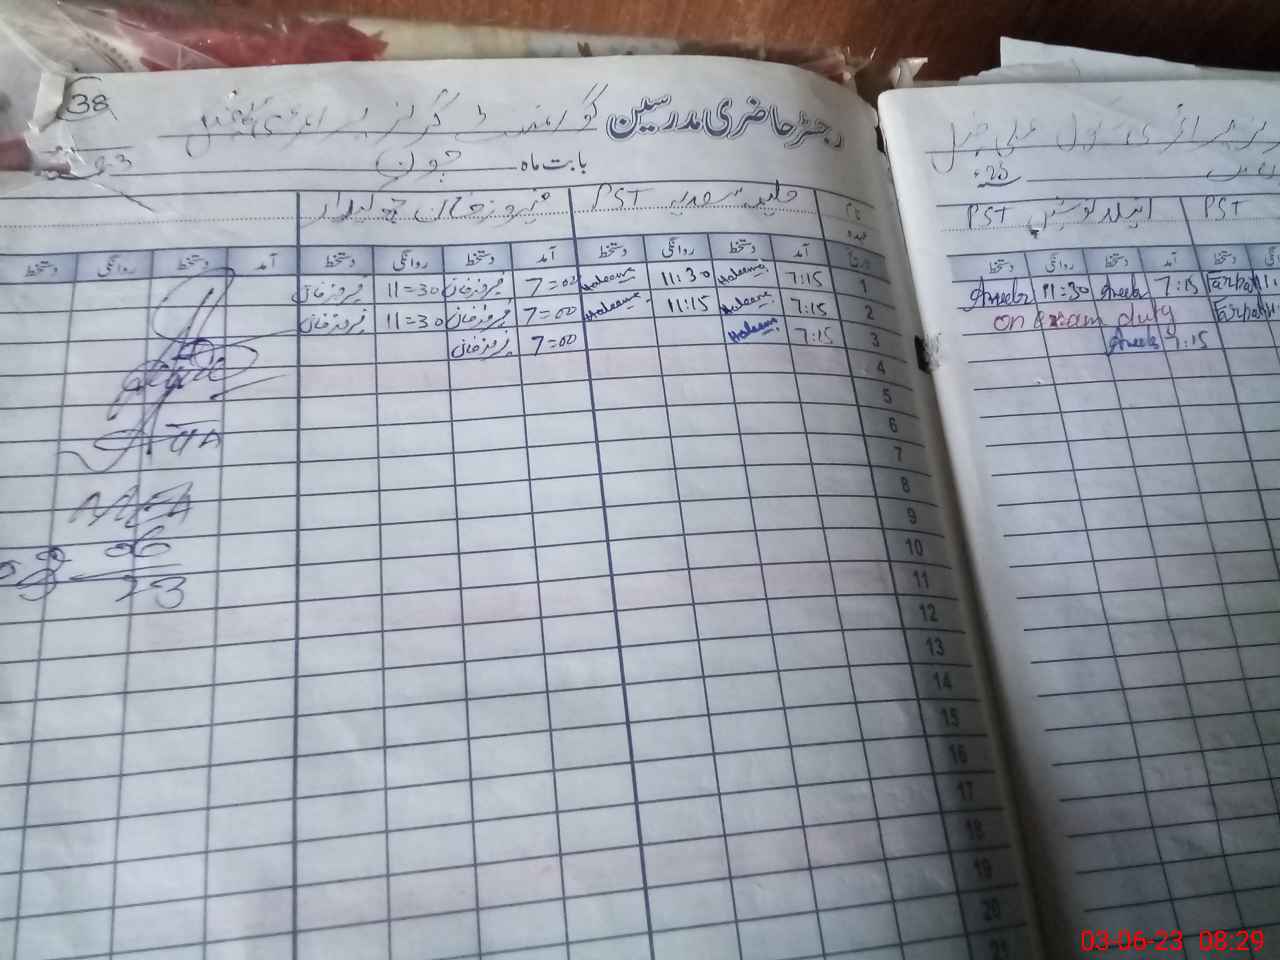 38
رجسٹر حاضری مدرسین گورنمنٹ گرلز پرائمری
بابت ماہ جون
نام عہدہ حلیمہ سعدیہ PST فیروز خان چوکیدار
تاریخ آمد دستخط روانگی دستخط آمد دستخط روانگی دستخط آمد دستخط روانگی دستخط
1 7:15 Haleema 11:30 Haleema 7=00 فیروز خان 11=30 فیروز خان
2 7:15 Haleema 11:15 Haleema 7=00 فیروز خان 11=30 فیروز خان
3 7:15 Haleema 7=00 فیروز خان
4
5
6
7
8
9
10
11
12
13
14
15
16
17
18
19
20
21
06
23
PST PST
آمد دستخط روانگی دستخط
Aneela 11:30 Aneela 7:15 Farhat
on Exam duty Farhat
Aneela 7:15
03-06-23 08:29